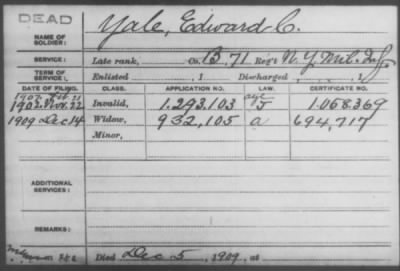 DEAD
NAME OF SOLDIER: Yale, Edward C.
SERVICE: Late rank, Co. B, 71 Reg't N.Y. Mil. Inf.
TERM OF SERVICE: Enlisted , 1 Discharged , 1
DATE OF FILING. CLASS. APPLICATION NO. LAW. CERTIFICATE NO.
1907 Feb 11 age
1902 Nov. 22 Invalid, 1.293,103 J 1.068369
1909 Dec 14 Widow, 932,105 a 694,717
Minor,
ADDITIONAL SERVICES:
REMARKS:
Died Dec 5, 1909, at